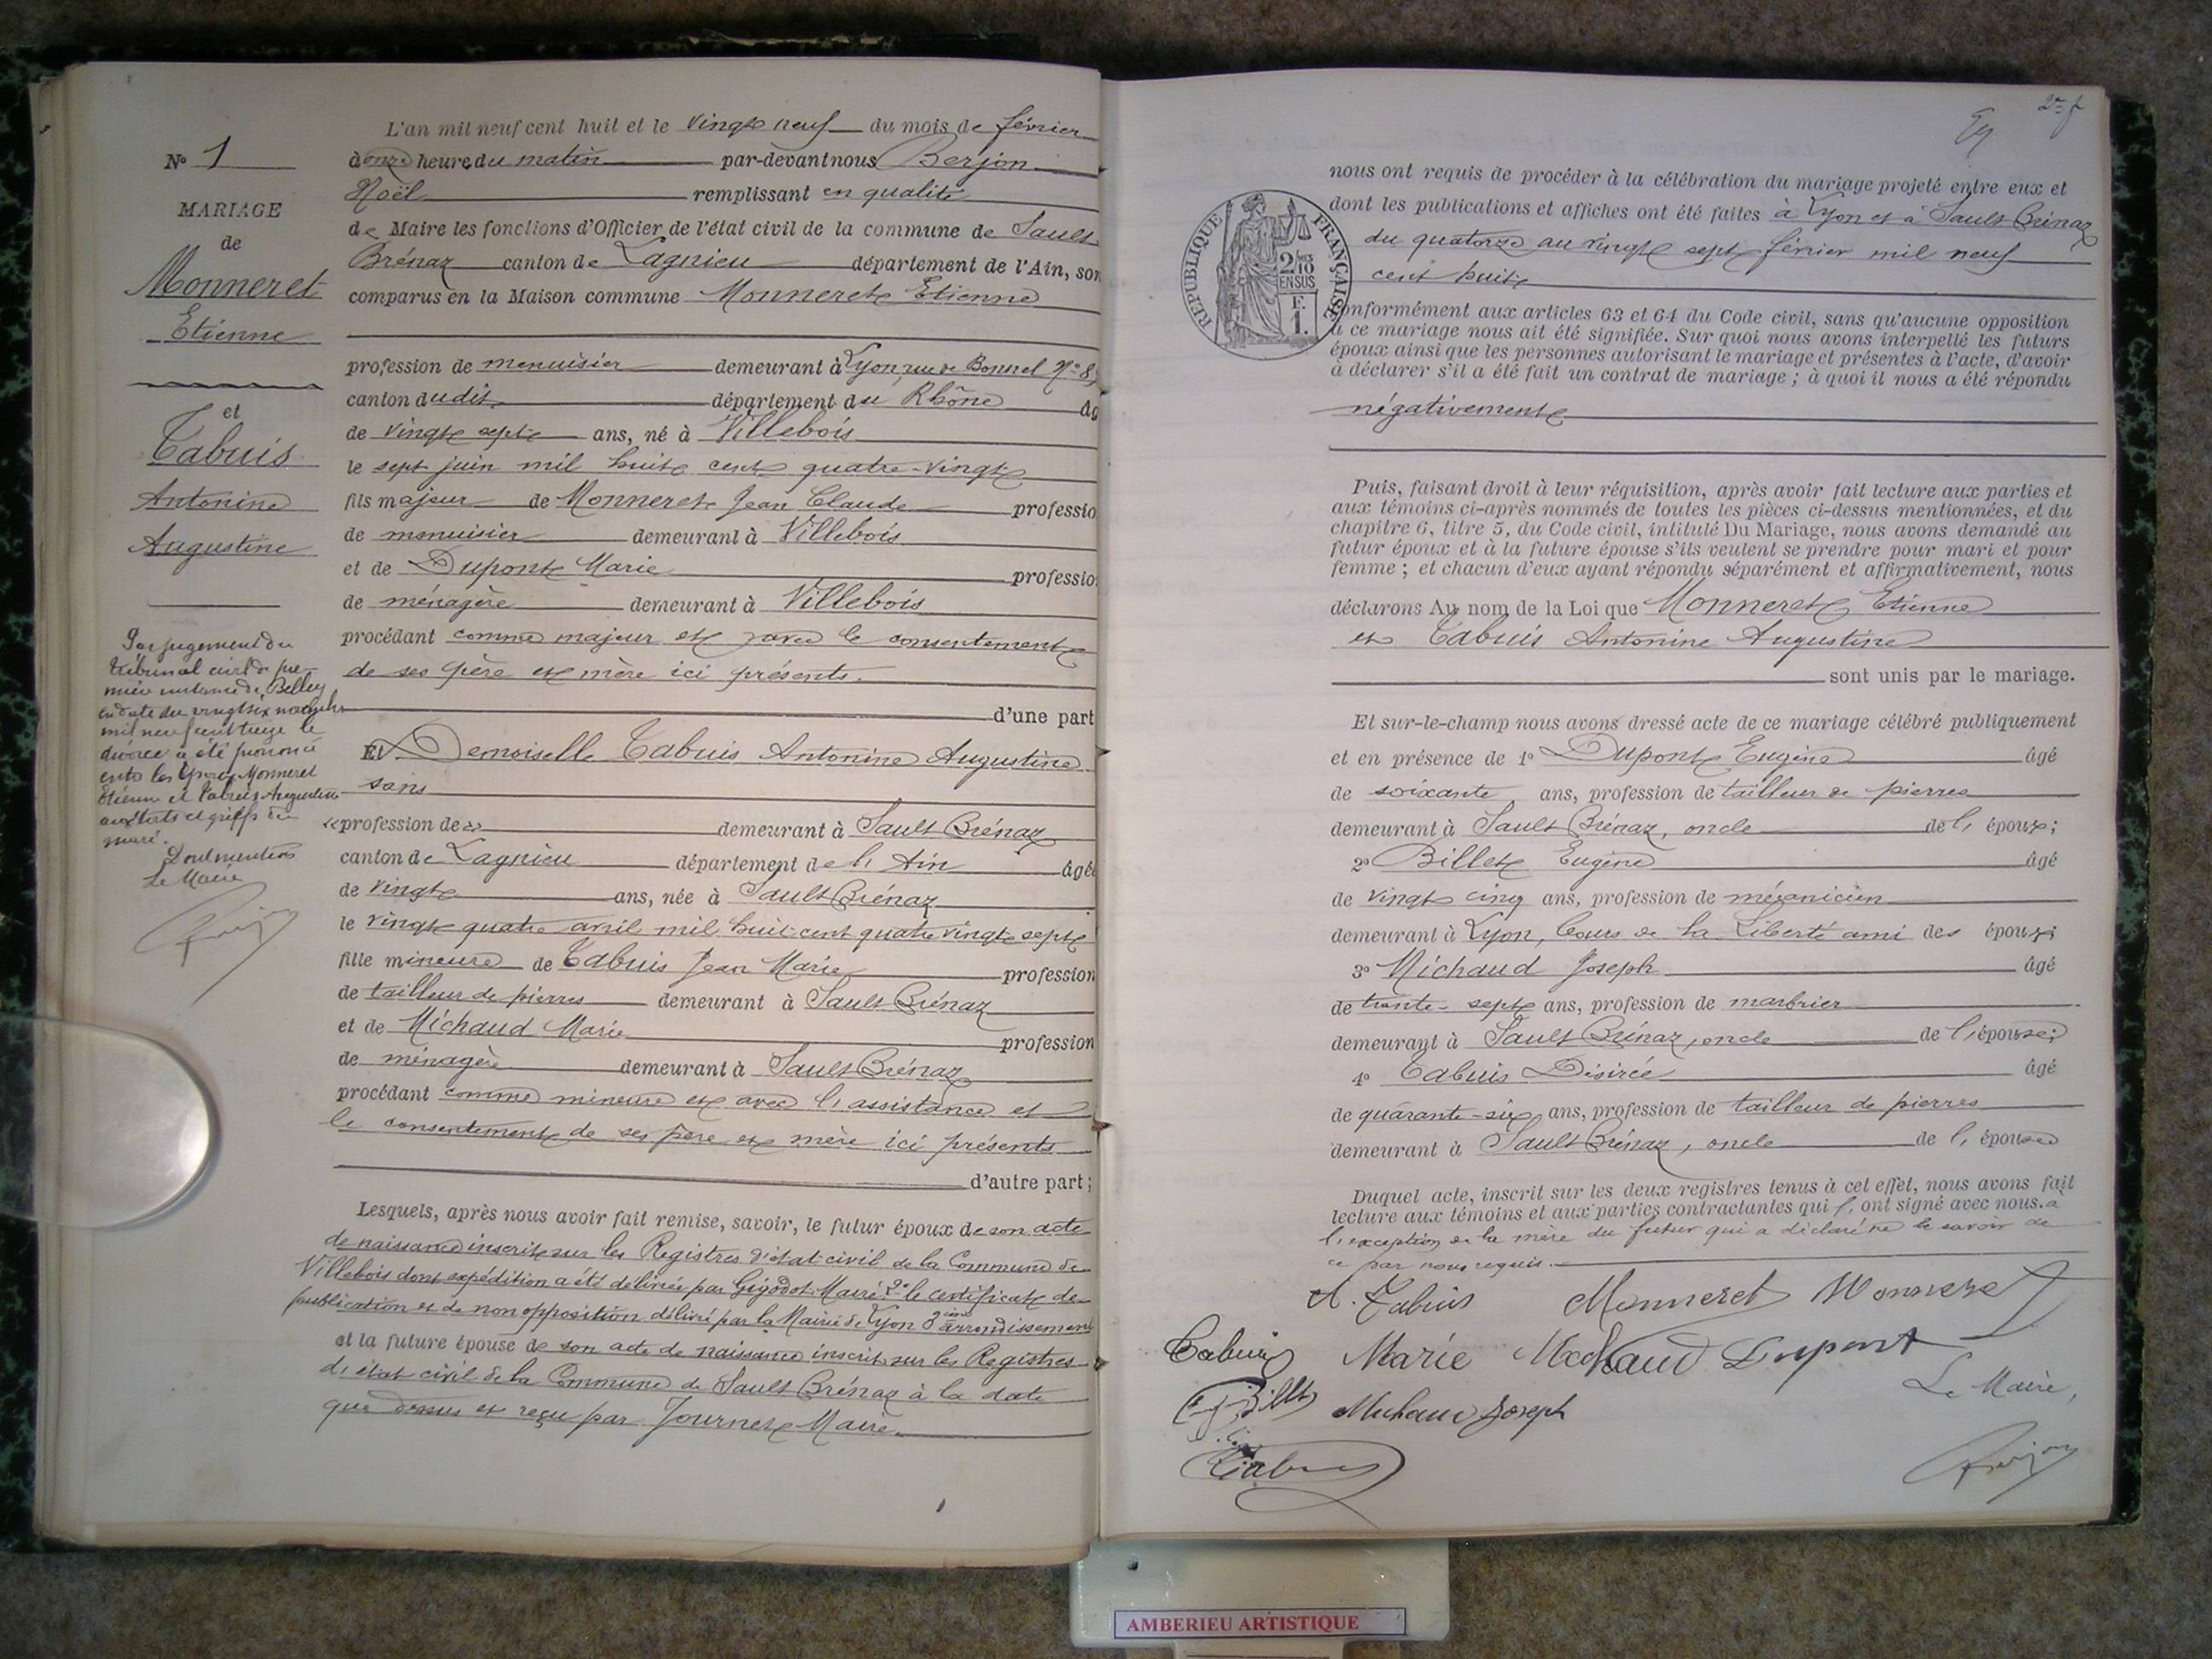 N° 1
MARIAGE
de
Monneret
Etienne
et
Tabuis
Antonine
Augustine
Par jugement du
tribunal civil de pre-
mière instance de Belley
en date du vingt six novembre
mil neuf cent treize le
divorce a été prononcé
entre les époux Monneret
Etienne et Tabuis Augustine
aux torts et griefs du
mari.
Dont mention
Le Maire
L'an mil neuf cent huit et le vingt neuf du mois de février
à onze heure du matin par-devant nous Berjon
Noël remplissant en qualité
de Maire les fonctions d'Officier de l'état civil de la commune de Sault
Brénaz canton de Lagnieu département de l'Ain, son
comparus en la Maison commune Monneret Etienne
profession de menuisier demeurant à Lyon, rue de Bonnel N° 8,
canton dudit département du Rhône âg
de vingt sept ans, né à Villebois
le sept juin mil huit cent quatre-vingt
fils majeur de Monneret Jean Claude professio
de menuisier demeurant à Villebois
et de Dupont Marie professio
de ménagère demeurant à Villebois
procédant comme majeur et avec le consentement
de ses père et mère ici présents.
d'une part
Et Demoiselle Tabuis Antonine Augustine
sans
profession de demeurant à Sault Brénaz
canton de Lagnieu département de l'Ain âgée
de vingt ans, née à Sault Brénaz
le vingt quatre avril mil huit cent quatre vingt sept
fille mineure de Tabuis Jean Marie profession
de tailleur de pierres demeurant à Sault Brénaz
et de Michaud Marie profession
de ménagère demeurant à Sault Brénaz
procédant comme mineure et avec l'assistance et
le consentement de ses père et mère ici présents
d'autre part ;
Lesquels, après nous avoir fait remise, savoir, le futur époux de son acte
de naissance inscrit sur les Registres d'état civil de la Commune de
Villebois dont expédition a été délivrée par Gigodot Maire. 2° le certificat de
publication et de non opposition délivré par la Mairie de Lyon 3ème arrondissement
et la future épouse de son acte de naissance inscrit sur les Registres
d'état civil de la Commune de Sault Brénaz à la date
que dessus et reçu par Journet Maire.
RÉPUBLIQUE FRANÇAISE
2/10
EN SUS
F.
1.
nous ont requis de procéder à la célébration du mariage projeté entre eux et
dont les publications et affiches ont été faites à Lyon et à Sault Brénaz
du quatorze au vingt sept février mil neuf
cent huit
conformément aux articles 63 et 64 du Code civil, sans qu'aucune opposition
à ce mariage nous ait été signifiée. Sur quoi nous avons interpellé les futurs
époux ainsi que les personnes autorisant le mariage et présentes à l'acte, d'avoir
à déclarer s'il a été fait un contrat de mariage ; à quoi il nous a été répondu
négativement
Puis, faisant droit à leur réquisition, après avoir fait lecture aux parties et
aux témoins ci-après nommés de toutes les pièces ci-dessus mentionnées, et du
chapitre 6, titre 5, du Code civil, intitulé Du Mariage, nous avons demandé au
futur époux et à la future épouse s'ils veulent se prendre pour mari et pour
femme ; et chacun d'eux ayant répondu séparément et affirmativement, nous
déclarons Au nom de la Loi que Monneret Etienne
et Tabuis Antonine Augustine
sont unis par le mariage.
Et sur-le-champ nous avons dressé acte de ce mariage célébré publiquement
et en présence de 1° Dupont Eugène âgé
de soixante ans, profession de tailleur de pierres
demeurant à Sault Brénaz, oncle de l'époux ;
2° Billet Eugène âgé
de vingt cinq ans, profession de mécanicien
demeurant à Lyon, Cours de la Liberté ami des époux ;
3° Michaud Joseph âgé
de trente-sept ans, profession de marbrier
demeurant à Sault Brénaz, oncle de l'épouse ;
4° Tabuis Désirée âgé
de quarante-six ans, profession de tailleur de pierres
demeurant à Sault Brénaz, oncle de l'épouse
Duquel acte, inscrit sur les deux registres tenus à cet effet, nous avons fait
lecture aux témoins et aux parties contractantes qui l'ont signé avec nous. à
l'exception de la mère du futur qui a déclaré ne le savoir de
ce par nous requis.
A. Tabuis Monneret Monneret
Tabuis Marie Michaud Dupont
Le Maire,
Billet Michaud Joseph
Tabuis
AMBERIEU ARTISTIQUE